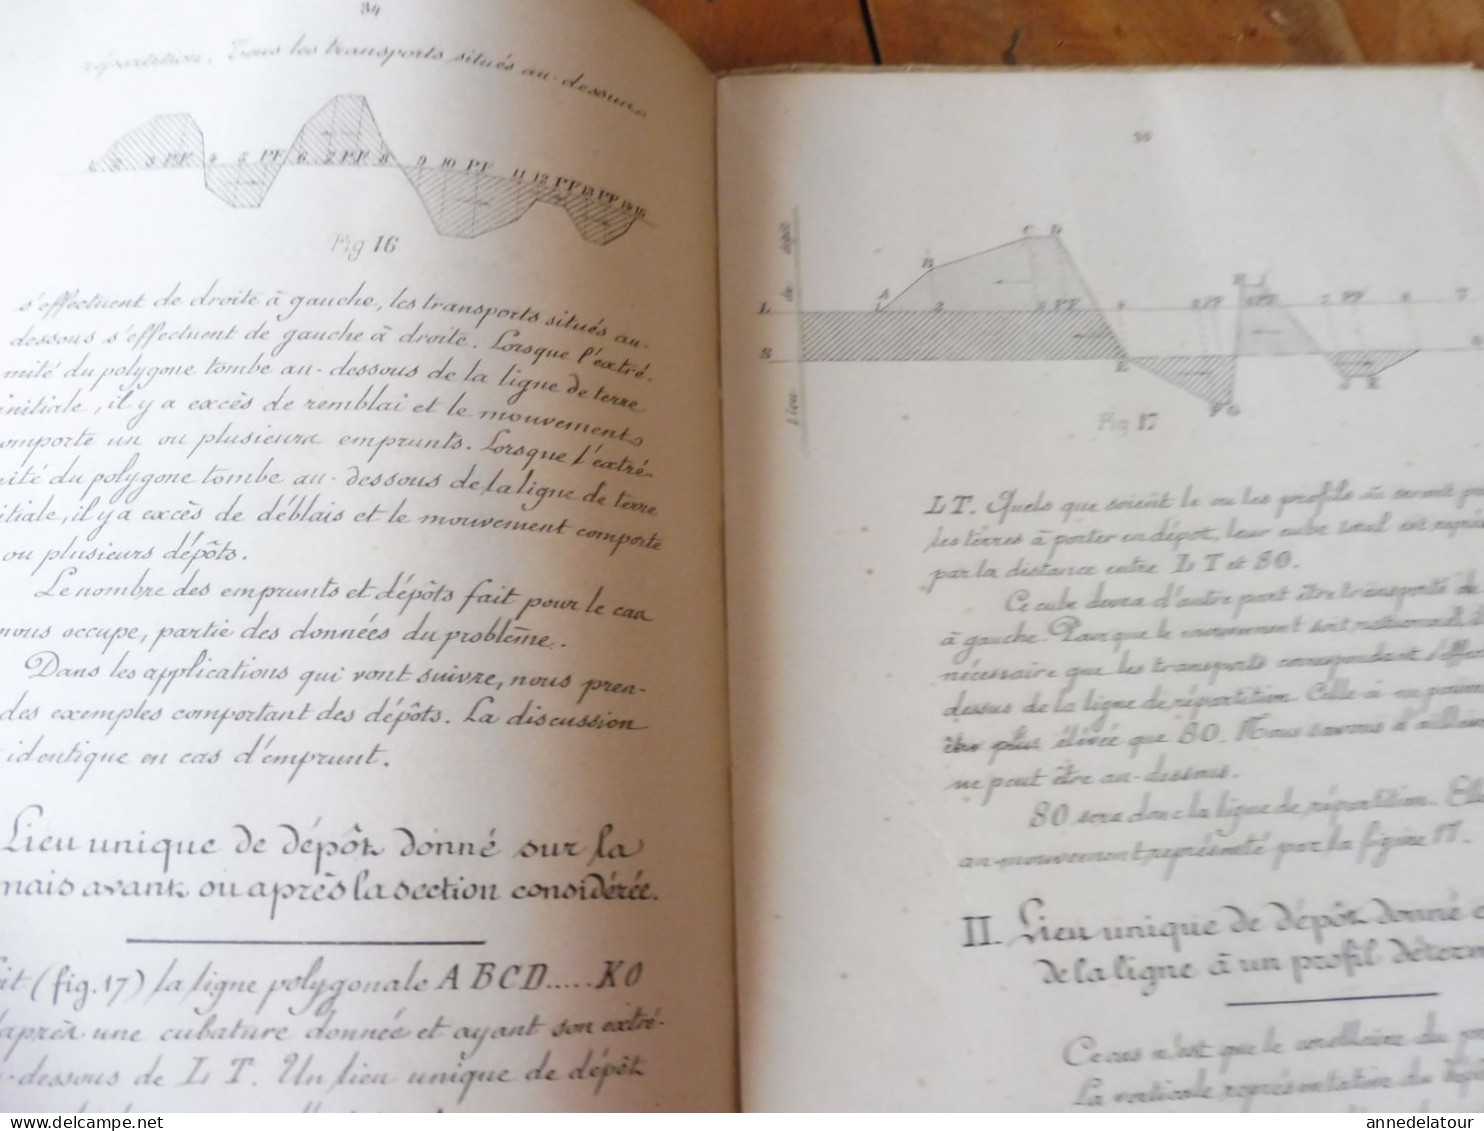 34
répartition. Tous les transports situés au-dessus
1 2 3 PF 4 5 PF 6 7 PF 8 9 10 PF 11 12 PF 13 PF 14 15
Fig 16
s'effectuent de droite à gauche, les transports situés au-
dessous s'effectuent de gauche à droite. Lorsque l'extré-
mité du polygone tombe au-dessous de la ligne de terre
initiale, il y a excès de remblai et le mouvement
comporte un ou plusieurs emprunts. Lorsque l'extré-
mité du polygone tombe au-dessous de la ligne de terre
itiale, il y a excès de déblais et le mouvement comporte
ou plusieurs dépôts.
Le nombre des emprunts et dépôts fait pour le cas
nous occupe, partie des données du problème.
Dans les applications qui vont suivre, nous pren-
des exemples comportant des dépôts. La discussion
identique en cas d'emprunt.
Lieu unique de dépôt donné sur la
mais avant ou après la section considérée.
it (fig. 17) la ligne polygonale A B C D.....K O
après une cubature donnée et ayant son extré-
-dessous de L T. Un lieu unique de dépôt
Lieu de dépôt
A B C D
L 1 2 3 PF 4 PF 6 PF 7 PF 8 T
S E O
F G
Fig 17
L T. Quels que soient le ou les profils où seront
les terres à porter en dépôt, leur cube total est
par la distance entre L T et SO.
Ce cube devra d'autre part être transporté de
à gauche. Pour que le mouvement soit rationnel, il
nécessaire que les transports correspondant s'effec
dessus de la ligne de répartition. Celle-ci ne
être plus élevée que SO. Nous savons d'ailleu
ne peut être au-dessous.
SO sera donc la ligne de répartition. Elle
au mouvement représenté par la figure 17.
II. Lieu unique de dépôt donné
de la ligne à un profil déterm
Ce cas n'est que le corollaire du
La verticale représentative du
annedelatour
www.delcampe.net